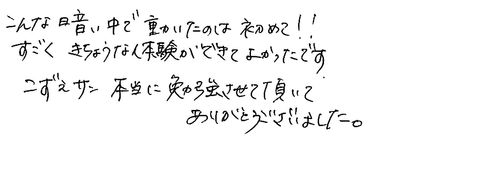 こんな暗い中で動いたのは初めて!!
すごくきちょうな体験ができてよかったです
こずえサン 本当に勉強させて頂いて
ありがとうございました。